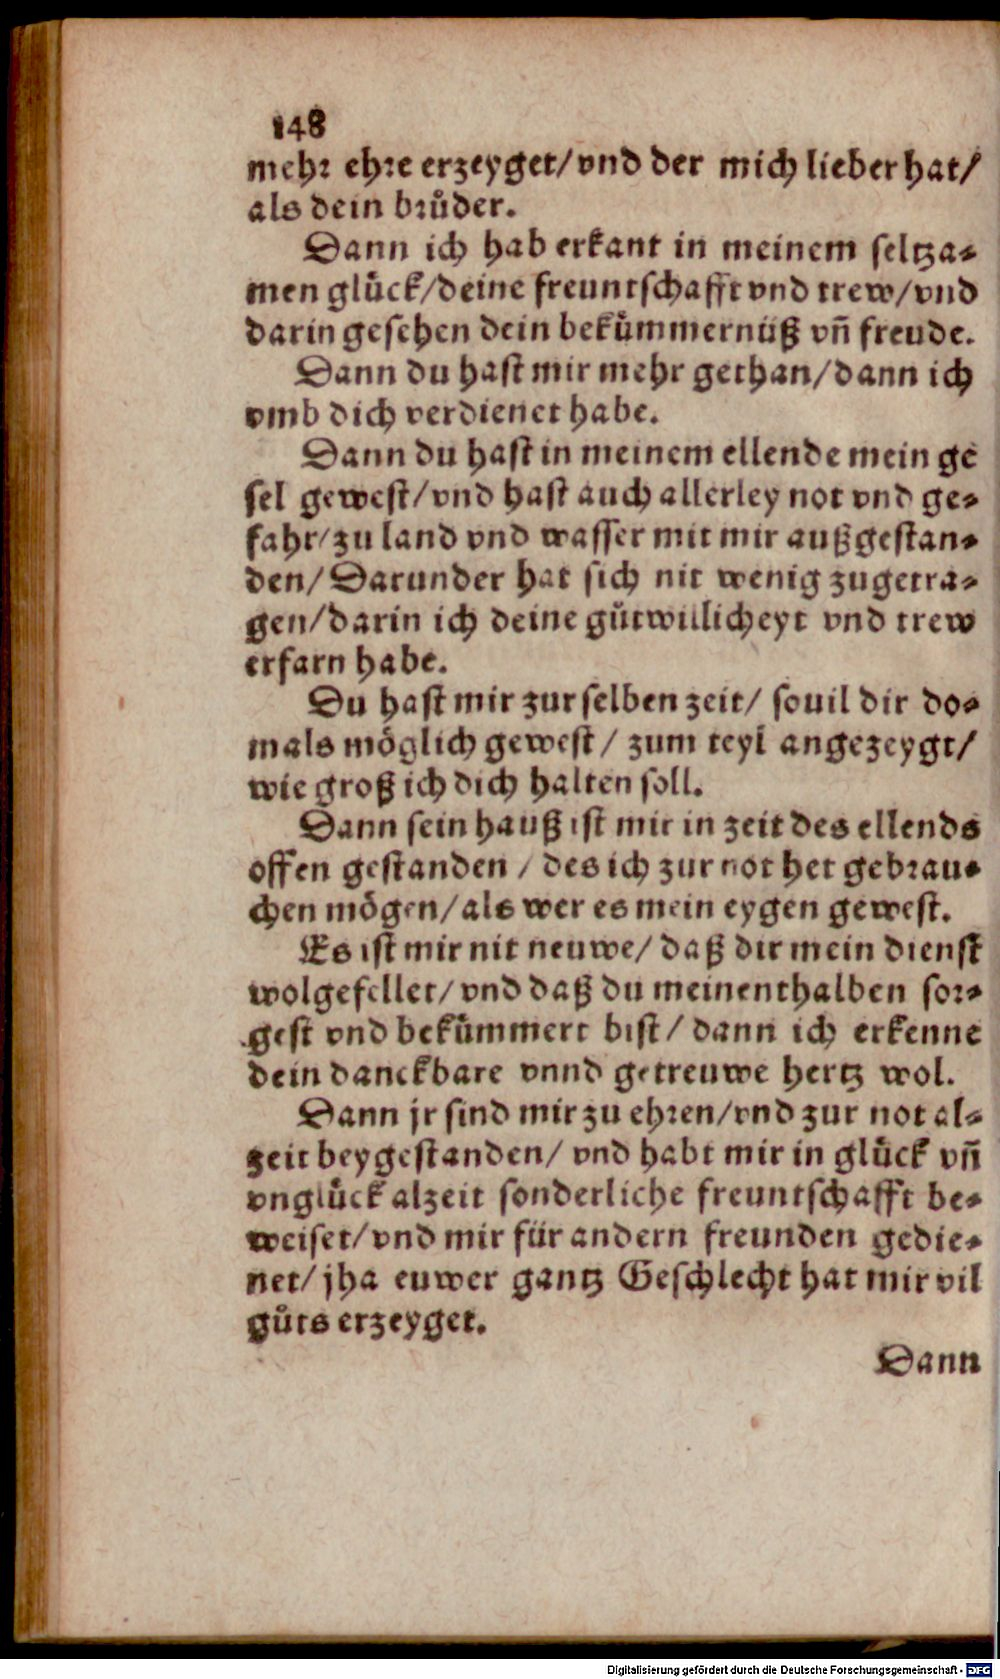 148
mehr ehre erzeyget/vnd der mich lieber hat/
als dein brůder.
Dann ich hab erkant in meinem seltza-
men glůck/deine freuntschafft vnd trew/vnd
darin gesehen dein bekům̃ernüß vñ freude.
Dann du hast mir mehr gethan/dann ich
vmb dich verdienet habe.
Dann du hast in meinem ellende mein ge
sel gewest/vnd hast auch allerley not vnd ge-
fahr/zu land vnd wasser mit mir außgestan-
den/Darunder hat sich nit wenig zugetra-
gen/darin ich deine gůtwillicheyt vnd trew
erfarn habe.
Du hast mir zur selben zeit/ souil dir do-
mals möglich gewest/ zum teyl angezeygt/
wie groß ich dich halten soll.
Dann sein hauß ist mir in zeit des ellends
offen gestanden / des ich zur not het gebrau-
chen mögen/als wer es mein eygen gewest.
Es ist mir nit neuwe/ daß dir mein dienst
wolgefellet/vnd daß du meinenthalben sor-
gest vnd bekům̃ert bist/ dann ich erkenne
dein danckbare vnnd getreuwe hertz wol.
Dann jr sind mir zu ehren/vnd zur not al-
zeit beygestanden/ vnd habt mir in glůck vñ
vnglůck alzeit sonderliche freuntschafft be-
weiset/vnd mir für andern freunden gedie-
net/ jha euwer gantz Geschlecht hat mir vil
gůts erzeyget.
Dann
Digitalisierung gefördert durch die Deutsche Forschungsgemeinschaft - DFG